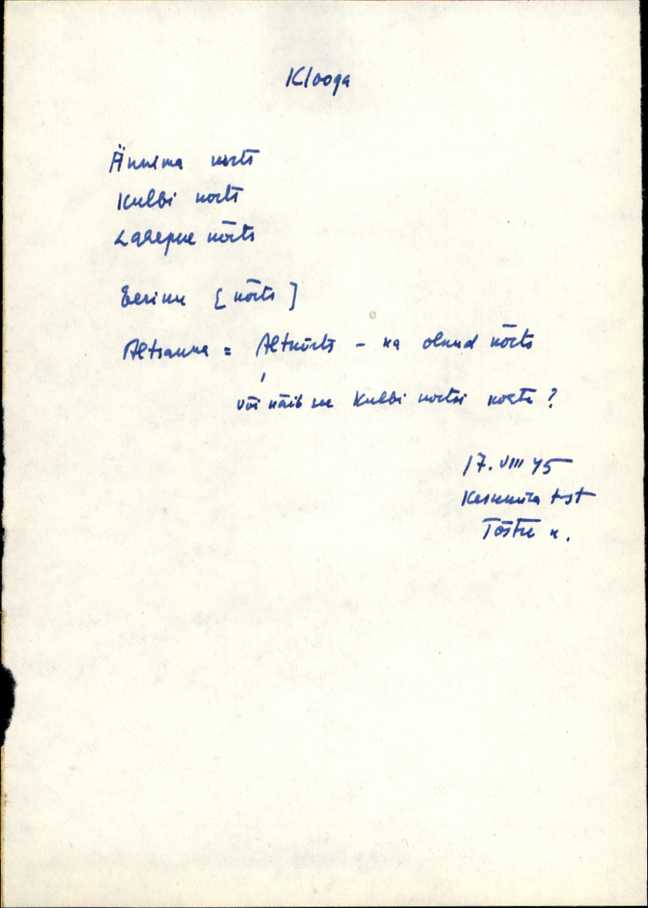 Klooga
Ännima körts
Kulbi körts
Lagepere kõrts
Eerinu [kõrts]
Altsauna = Altkõrts - ka olnud kõrts
või käib see Kulbi kortsi kohta?
17. VIII 45
Keskküla tst
Tõstre k.